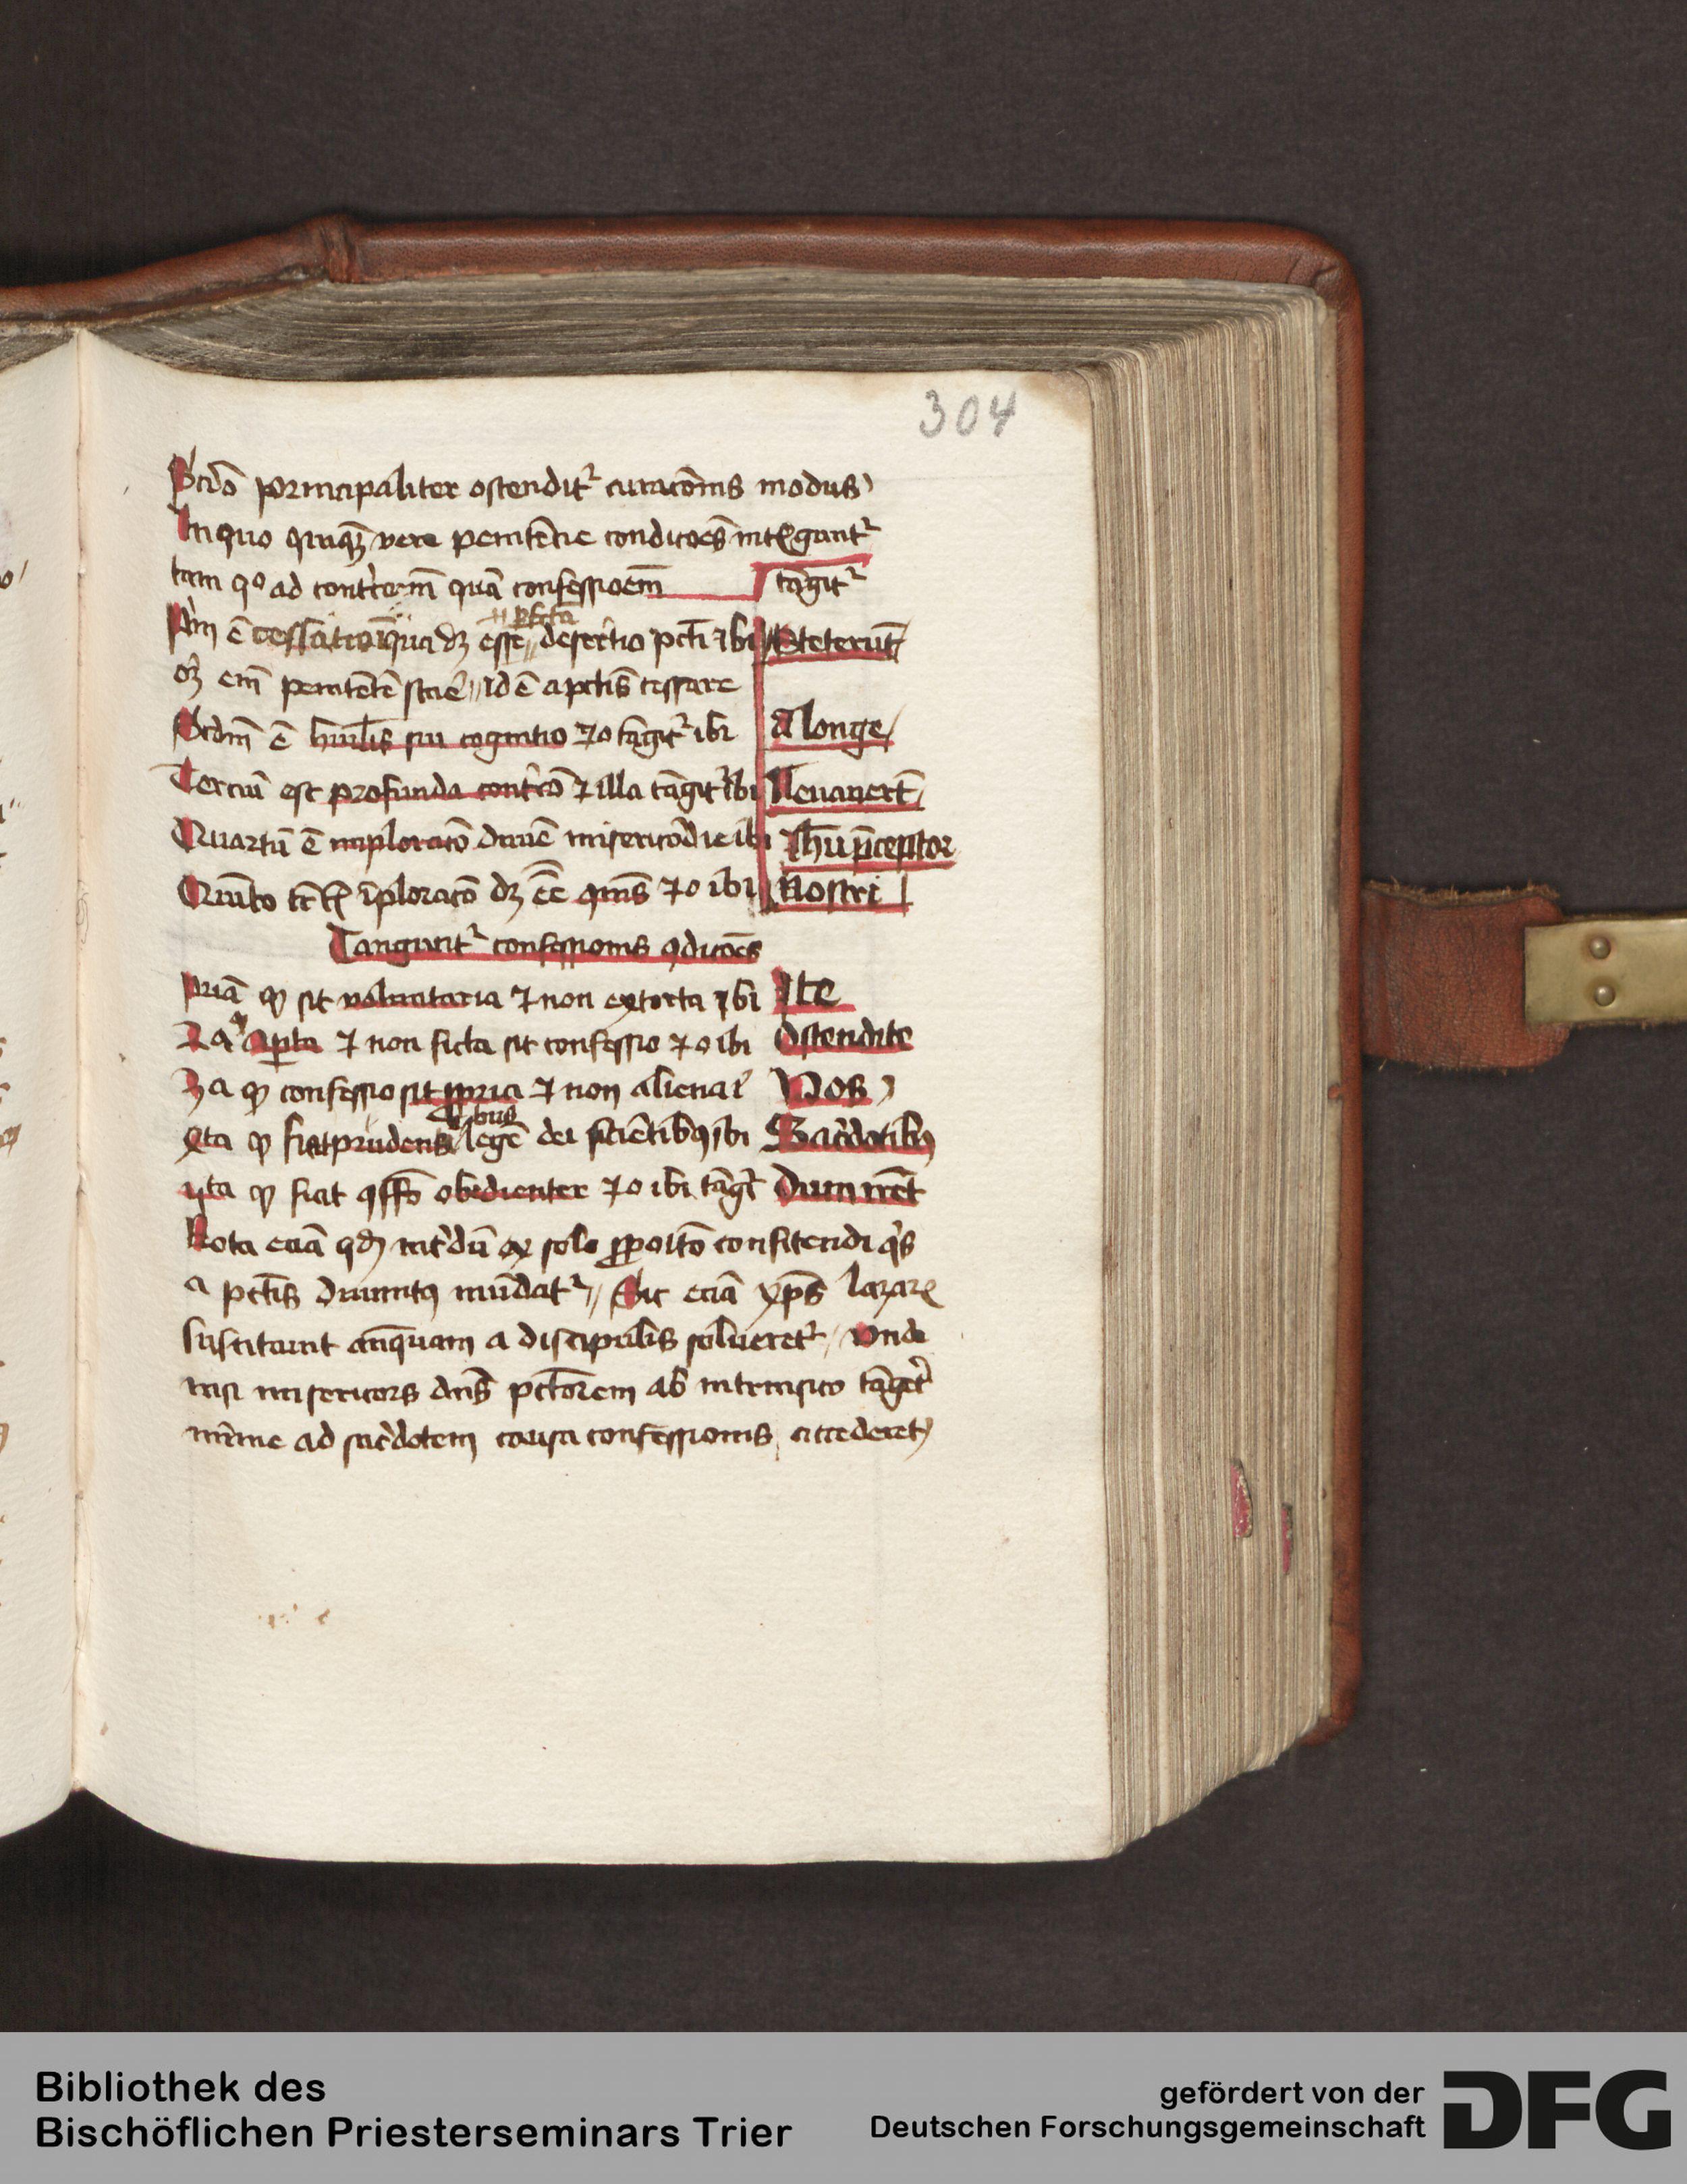 304
Scdo principaliter ostendit᷑ curacõnis modus
In quo quiqꝫ vere penitẽcie condicoẽs intꝑgunt᷑
tam qͦ ad contriccoem̄ quã confessioem̄ tãgit᷑
ꝑfcta
Pm̃ ẽ cessatio in qua dꝫ esse deserc̃io pcti ⁊ ibi Steterũt
oꝫ em̃ penitẽtẽ stare id ẽ a pctis cessare
Scdm̃ ẽ hũilis sui cognitio ⁊ᵒ tãgit᷑ ibi A longe
Terciũ est profunda contⁱcõ ⁊ illa tãgit᷑ ibi Leuauert̃
Quartũ ẽ imploracõ diuiẽ misericordie ibi Ihũ p̃ceptor
Quinto iploracõ dꝫ eẽ ⁊ᵒ ibi Nostri
Tangunt᷑ confessionis ꝯdicoẽs
Priã ꝙ sit voluntaria ⁊ non extorta ibi Ite
2a ꝙ aperta ⁊ non ficta sit confessio ⁊ᵒ ibi Ostendite
3a ꝙ confessio sit ꝓpria ⁊ non aliena Vos
ibus
4ta ꝙ fiat prudentibus legẽ dei sciẽtibꝰ ibi Sac̃dotibꝰ
5ta ꝙ fiat ꝯfessio obedienter ⁊ᵒ ibi tãgit᷑ Dum irẽt
Nota eciã qđ int̃dũ ex solo ꝓpoitõ confitendi qⁱs
a pctis diuinitꝰ mũdat᷑ Sic eciã xp̃s lazarũ
suscitauit anteq̃uam a discipulis solueret᷑ Vnde
nisi misericors dñs pctõrem ab intrinsico tãgeret
mĩme ad sac̃dotem causa confessionis accederet
Bibliothek des
Bischöflichen Priesterseminars Trier
gefördert von der
Deutschen Forschungsgemeinschaft
DFG